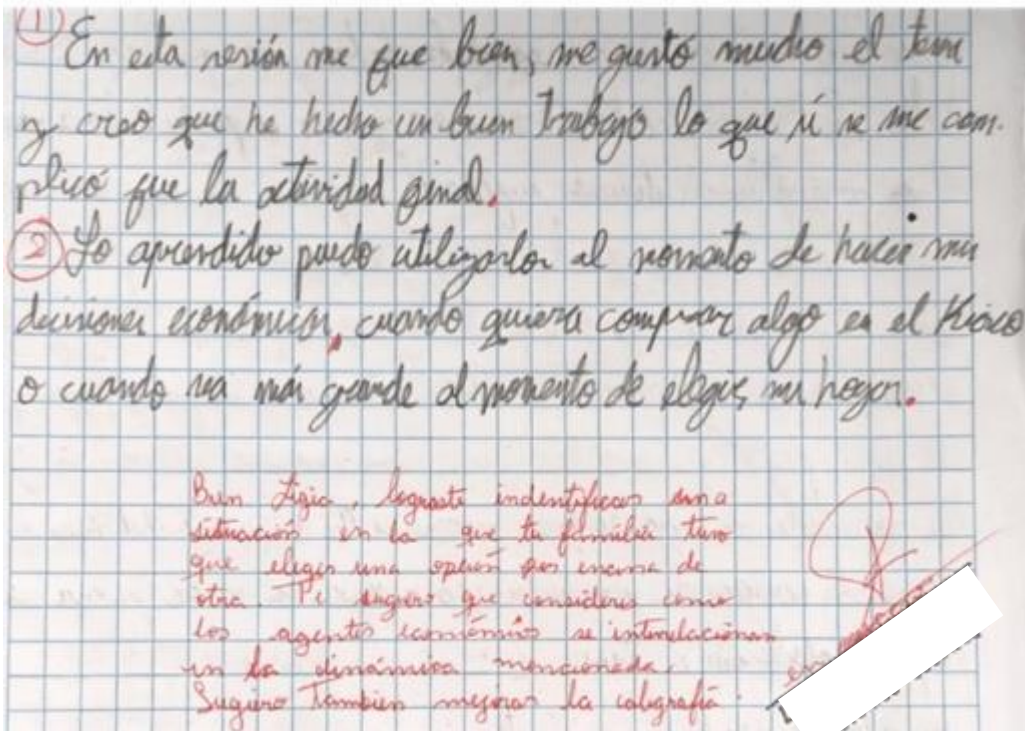 ① En esta sesión me fue bien, me gustó mucho el tem
y creo que he hecho un buen trabajo lo que si se me com-
plicó fue la actividad final.
② Lo aprendido puedo utilizarlo al momento de hacer mis
decisiones económicas, cuando quiera comprar algo en el Kiosco
o cuando sea más grande al momento de elegir mi hogar.
Buen Ligia, lograste indentificar una
situación en la que tu família tuvo
que elegir una opción por encima de
otra. Te sugiero que consideres como
los agentes económicos se interrelacionan
en la dinámica mencionada.
Sugiero Tambien mejorar la caligrafía.